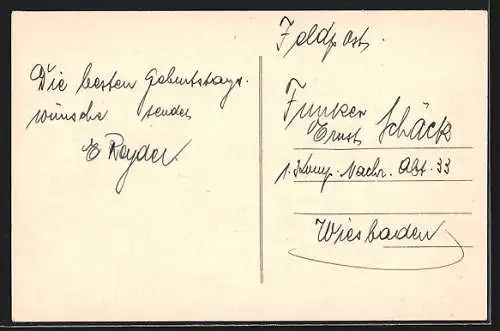 Die besten Geburtstags-
wünsche sendet
E Royder.
Feldpost.
Funker
Ernst Schäck
1. Komp. Nachr. Abt. 33
Wiesbaden